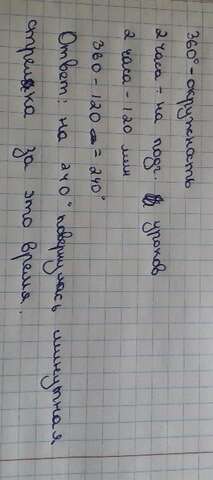 360° - окружность
2 часа - на подг. уроков
2 часа - 120 мин
360 - 120 = 240°
Ответ: на 240° повернулась минутная
стрелка за это время.